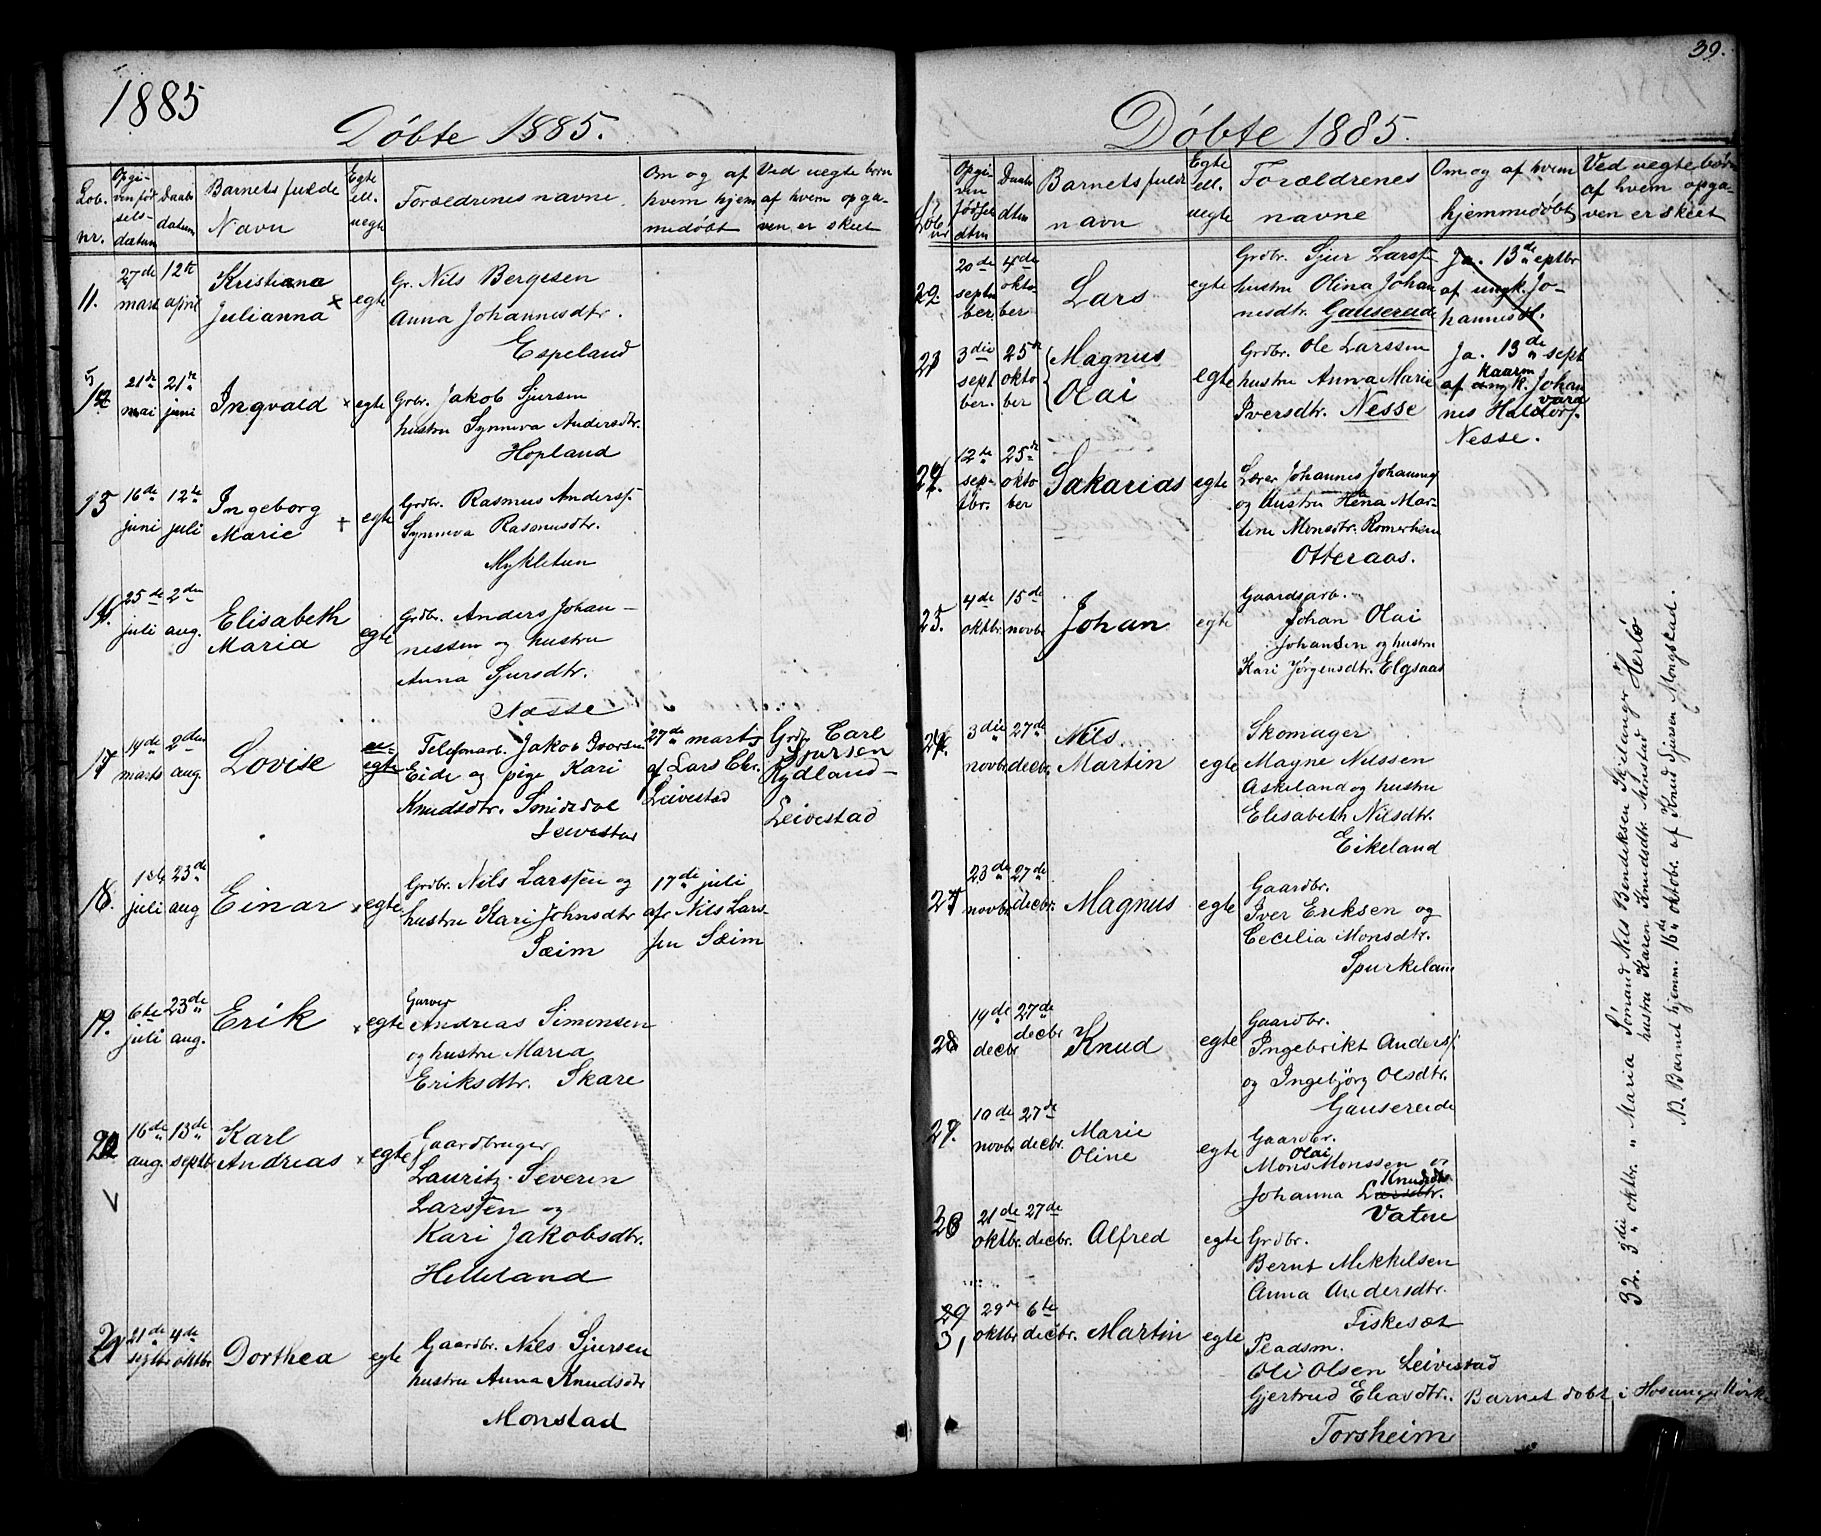 1885
Døbte 1885.
Løb. nr.
Opgi-
ven fød
sels-
datum
Daabs
datum
Barnets fulde
Navn
Egte
ell.
uegte
Forældrenes navne.
Om og af
hvem hjem
medøbt
Ved uegte børn
af hvem opga-
ven er skeet
11.
27de
mars
12te
april
Kristiana
Julianna ×
egte
Gr. Nils Bergesen
Anna Johannesdtr.
Espeland
12
21de
mai
21de
juni
Ingvald ×
egte
Grbr. Jakob Sjursen
hustru Synneva Andersdtr.
Hopland
15
16de
juni
12te
juli
Ingeborg
Marie +
egte
Grdbr. Rasmus Anders.
Synneva Rasmusdtr.
Mykletun
25de
juli
2den
aug.
Elisabeth
Maria
egte
Grdbr. Anders Johan-
nessen og hustru
Anna Sjursdtr.
Næsse
17
14de
marts
2den
aug.
Lovise
u-
egte
Telefonarb. Jakob Ivarsen
Eide og pige Kari
Knudsdtr. Smidedal
Leivestad
27de marts
af Lars Chr.
Leivestad
Grdbr. Carl
Sjursen
Rydland-
Leivestad
18.
1ste
juli
23de
aug
Einar ×
egte.
Grdbr. Nils Larssen og
hustru Kari Johnsdtr
Sæim
17de juli
afr Nils Lars-
sen Sæim
19.
6te
juli
23de
aug.
Erik ×
egte
Garver
Andreas Simonsen
og hustru Maria
Eriksdtr. Skare
16de
aug.
13de
septb
Karl
Andreas ×
egte
Gaardbruger
Lauritz Severin
Larssen og
Kari Jakobsdtr.
Helleland
21
21de
septbr
4de
oktbr
Dorthea
egte
Gaardbr. Nils Sjursen
hustru Anna Knudsdtr
Monstad
39.
Døbte 1885.
Løb.
nr
Opgi-
ven
fødsel
dtm
Daabs
dtm
Barnets fulde
navn
Egte
ell.
uegte
Forældrenes
navne
Om og af hvem
hjemmedøbt
Ved uegte børn
af hvem opga-
ven er skeet
22.
20de
septem
ber
4de
okto-
ber
Lars
egte
Grdbr. Sjur Larss.
hustru Olina Johan
nesdtr. Gausereide
Ja. 13de septbr
af ungk. Jo-
hannes H.
23
3die
sept
ber.
25de
okto
ber
Magnus
Olai
egte
Grdbr. Ole Larssen
hustru Anna Marie
Iversdtr. Nesse
Ja. 13de sept
af Kaarm ungk. Johan
nes Haldorj.
Nesse.
12te
sep-
tbr.
25de
okto
ber
Sakarias
egte
Lærer Johannes Johannes
og hustru Hena Mar-
tine Monsdtr. Romerheim
Otteraas.
25.
4de
oktbr
15de
novbr
Johan
egte
Gaardsarb.
Johan Olai
Johansen og hustru
Kari Jørgensdtr. Elgsaas
3die
novbr
27de
decbr
Nils
Martin
egte
Skomager
Magne Nilssen
Askeland og hustru
Elisabeth Nilsdtr.
Eikeland
27
23de
novbr
27de
decbr.
Magnus
egte
Gaardbr.
Iver Eriksen og
Cecilia Monsdtr.
Spurkeland
28
19de
decbr
27de
decbr
Knud
egte
Gaardbr.
Ingebrikt Anders.
og Ingebjørg Olsdtr.
Gausereide
29.
10de
novbr
27de
decbr.
Marie
Oline
egte
Gaardbr.
Olai
Mons Monssen og
Knudsdtr
Johanna Larsdtr.
Vatne
30
21de
oktbr.
27de
decbr.
Alfred
egte
Grdbr.
Bernt Mikkelsen
Anna Andersdtr.
Fiskesæt
29
31
29de
oktbr
6te
decbr.
Martin
egte
Pladsm.
Ole Olsen Leivestad
Gjertrud Eliasdtr. Barnet døbt i Hosanger Kirke
Torsheim
32. 3die oktbr. " Maria Sømand Nils Bendiksen Skjelanger Herlø
hustru Karen Knudsdtr. Monstad
N. Barnet hjemm. 16de oktobr. af Knud Sjursen Mongstad.